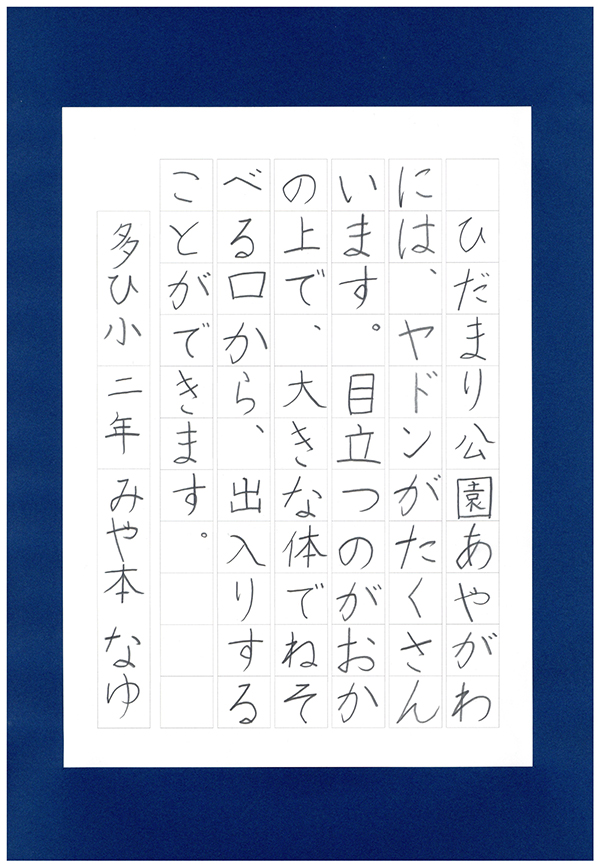 ひだまり公園あやがわ
には、ヤドンがたくさん
います。目立つのがおか
の上で、大きな体でねそ
べる口から、出入りする
ことができます。
多ひ小 二年 みや本 なゆ